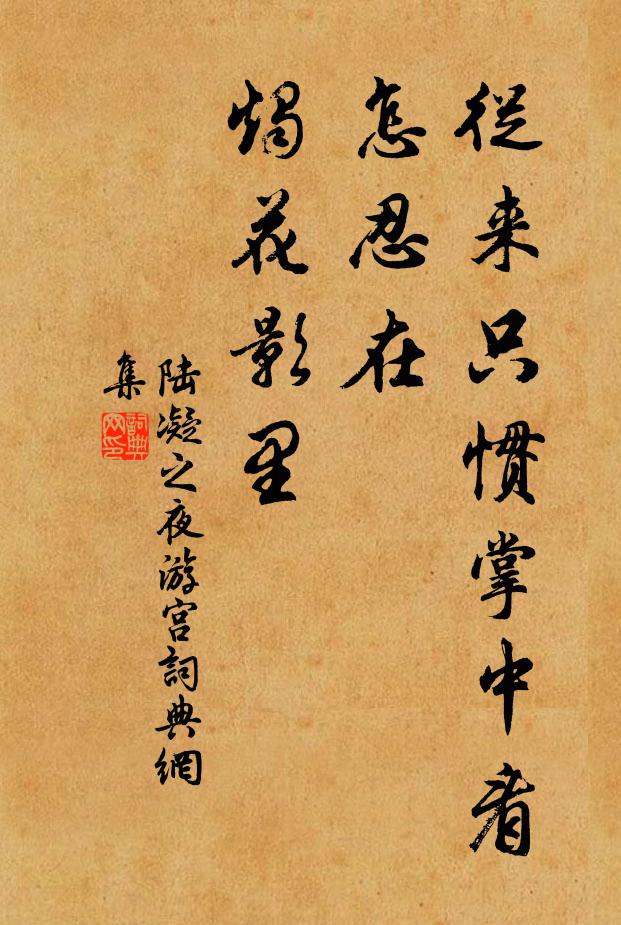 從来只慣掌中看
怎忍在
燭花影里
陆凝之夜游宮詞典網
集
詞典
网印